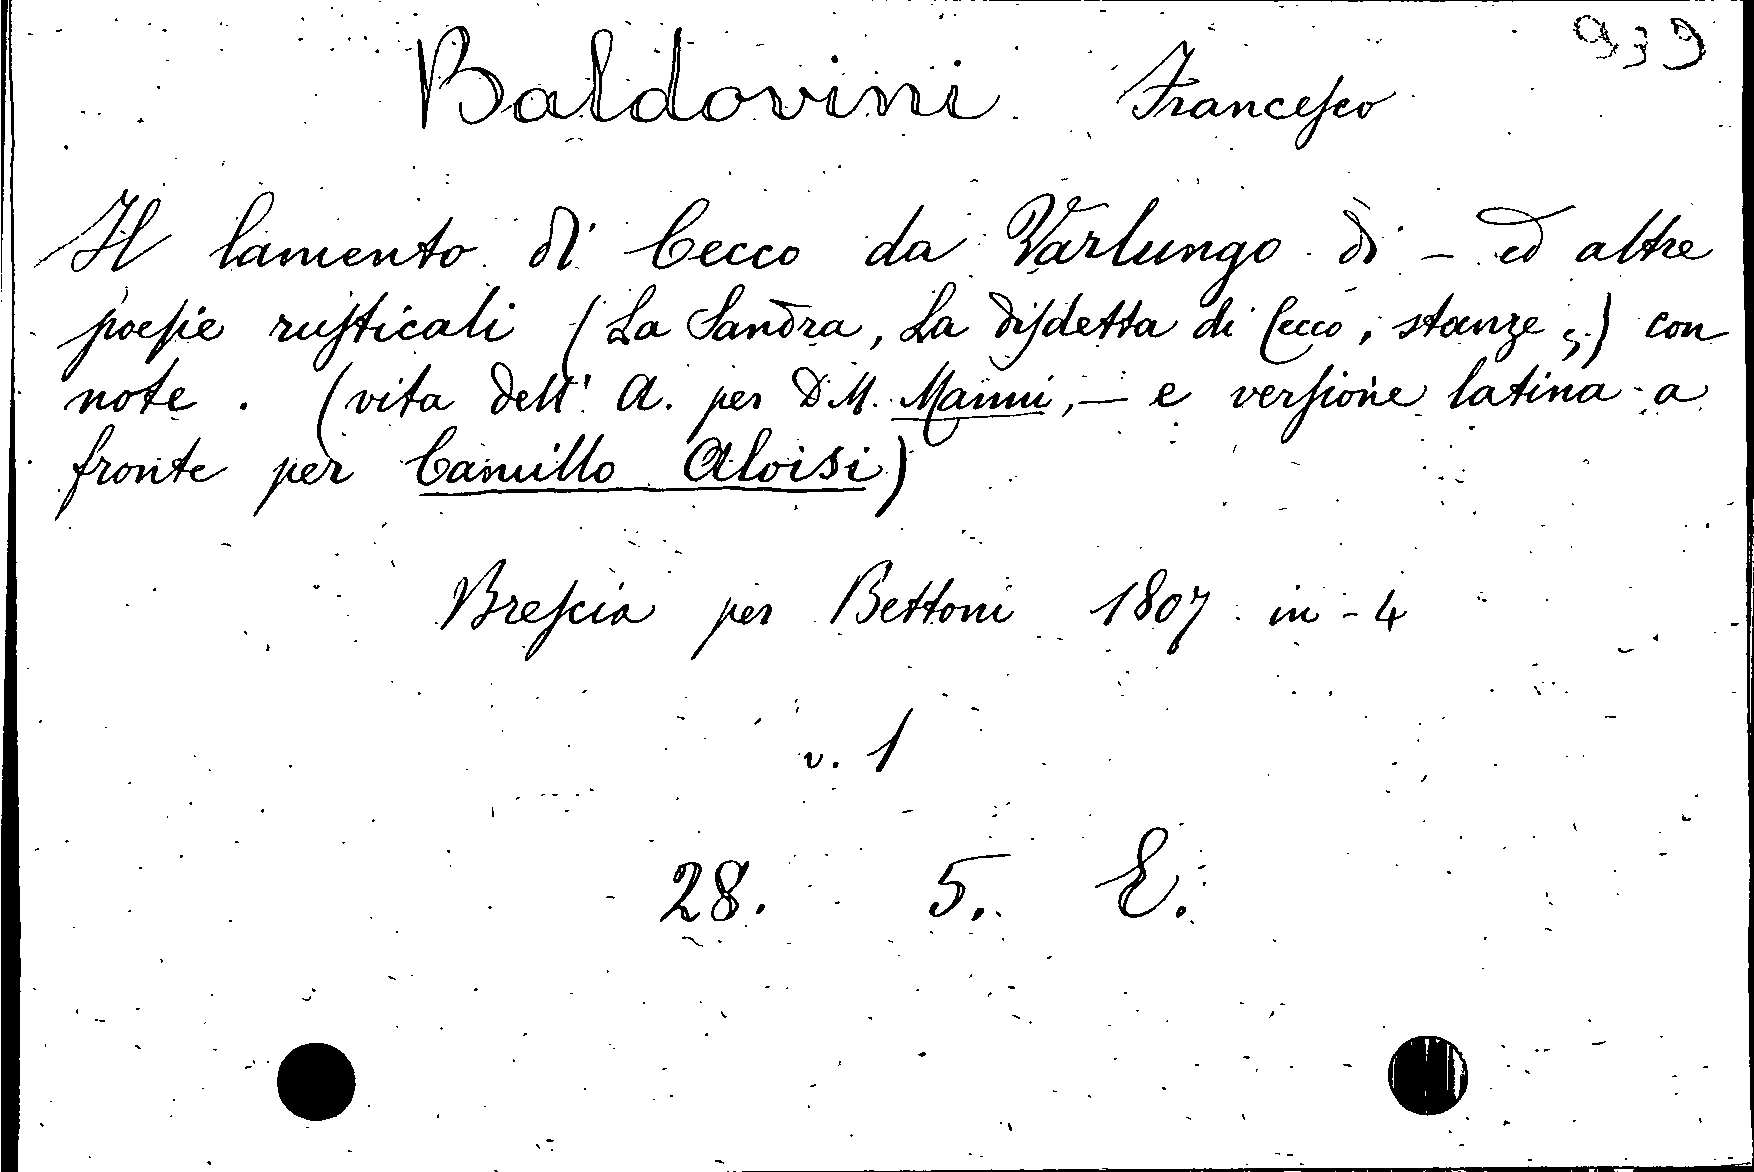 939
Baldovini Francesco
Il lamento di Cecco da Varlungo di - ed altre
poesie rusticali (La Sandra, La disdetta di Cecco, stanze,) con
note. (vita dell' A. per D.M. Manni, - e versione latina a
fronte per Camillo Aloisi)
Brescia per Bettoni 1807 in-4
v. 1
28. 5. E.